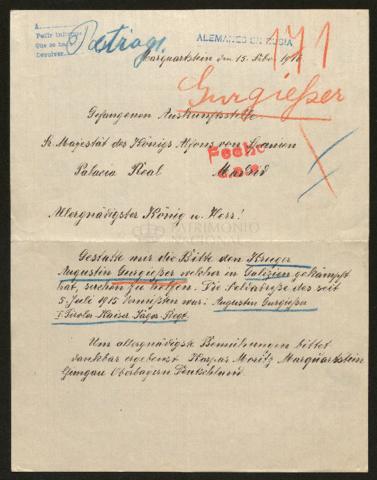 A
Pedir informe
Que se haga
Devolver
ALEMANES EN RUSIA
171
Marquartstein den 15. Febr. 1916
Gurgießer
Gefangenen Auskunftsstelle
Sr. Majestät des Königs Alfons von Spanien
Palacio Real Madrid
Fecho
Allergnädigster König u. Herr!
PATRIMONIO
NACIONAL
Gestatte mir die Bitte den Krieger
Augustin Gurgießer welcher in Galizien gekämpft
hat, suchen zu helfen. Die seit
5. Juli 1915 Vermißten war: Augustin Gurgießer
I. Tiroler Kaiser Jäger Regt.
Um allergnädigste Bemühungen bittet
dankbar ergebenst Kaspar Moritz Marquartstein
Oberbayern Deutschland.